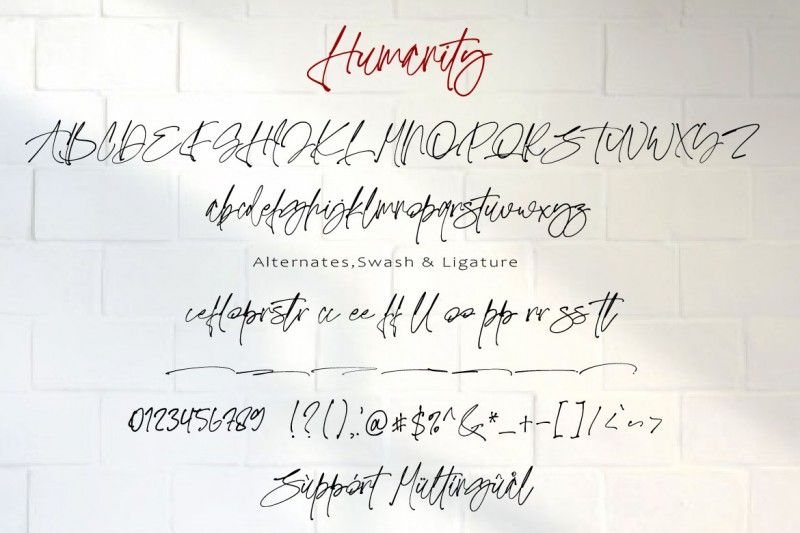 Humanity
ABCDEFGHIJKLMNOPQRSTUVWXYZ
abcdefghijklmnopqrstuvwxyz
Alternates,Swash & Ligature
cefloprstr cc ee ff ll oo pp rr ss tt
0123456789 !?(),.'@#$%^&*_+-[]/<~>
Sùppórt Mültingüâl